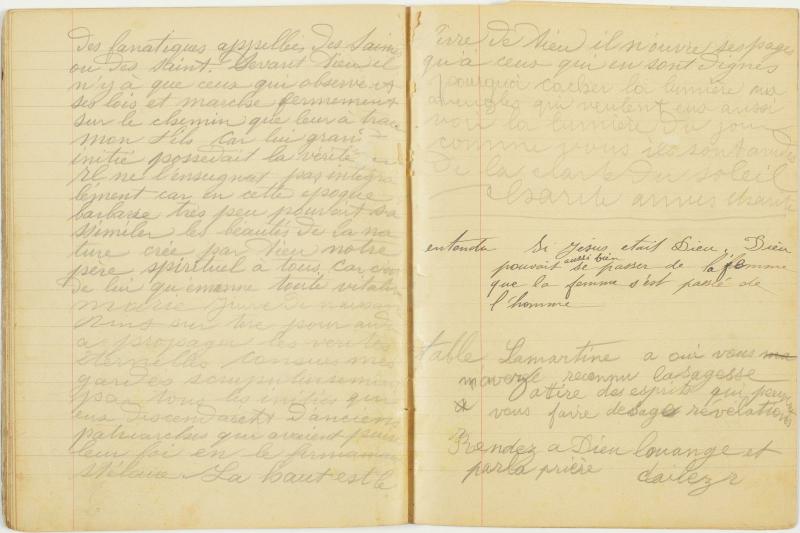 des fanatiques appellées des Saints
ou des Saint. Devant Dieu il
n'y à que ceux qui observent
ses lois et marche fermement
sur le chemin que leur à tracé
mon fils car lui grand
initié possedait la vérité
Il ne l'enseignat pas intégra
lement car en cette epoque
barbare très peu pouvait s'as
similer les beautés de la na
ture crée par Dieu notre
père spirituel à tous. Car c'est
de lui qu'emenne toute vitalité
sur tere pour
a propager les verités
éternelles conçues mes
gardées scrupuleusement
par tous les initiés qui
eux descendaient d'anciens
patriarches qui avaient puisé
leur foi en le firmament
stélaire La haut est le
livre de Dieu il n'ouvre ses pages
qu'à ceux qui en sont dignes
pourquoi cacher la lumière aux
aveugles qui veulent eux aussi
voir la lumière du jour
comme vous ils sont avides
de la clarté du soleil
entendu Si Jésus etait Dieu, Dieu
pouvait aussi bien se passer de la femme
que la femme s'est passée de
l'homme
table Lamartine a oui vous
reconnu la sagesse
attire des esprits qui peuvent
vous faire de sages révélations
Rendez a Dieu louange et
par la prière